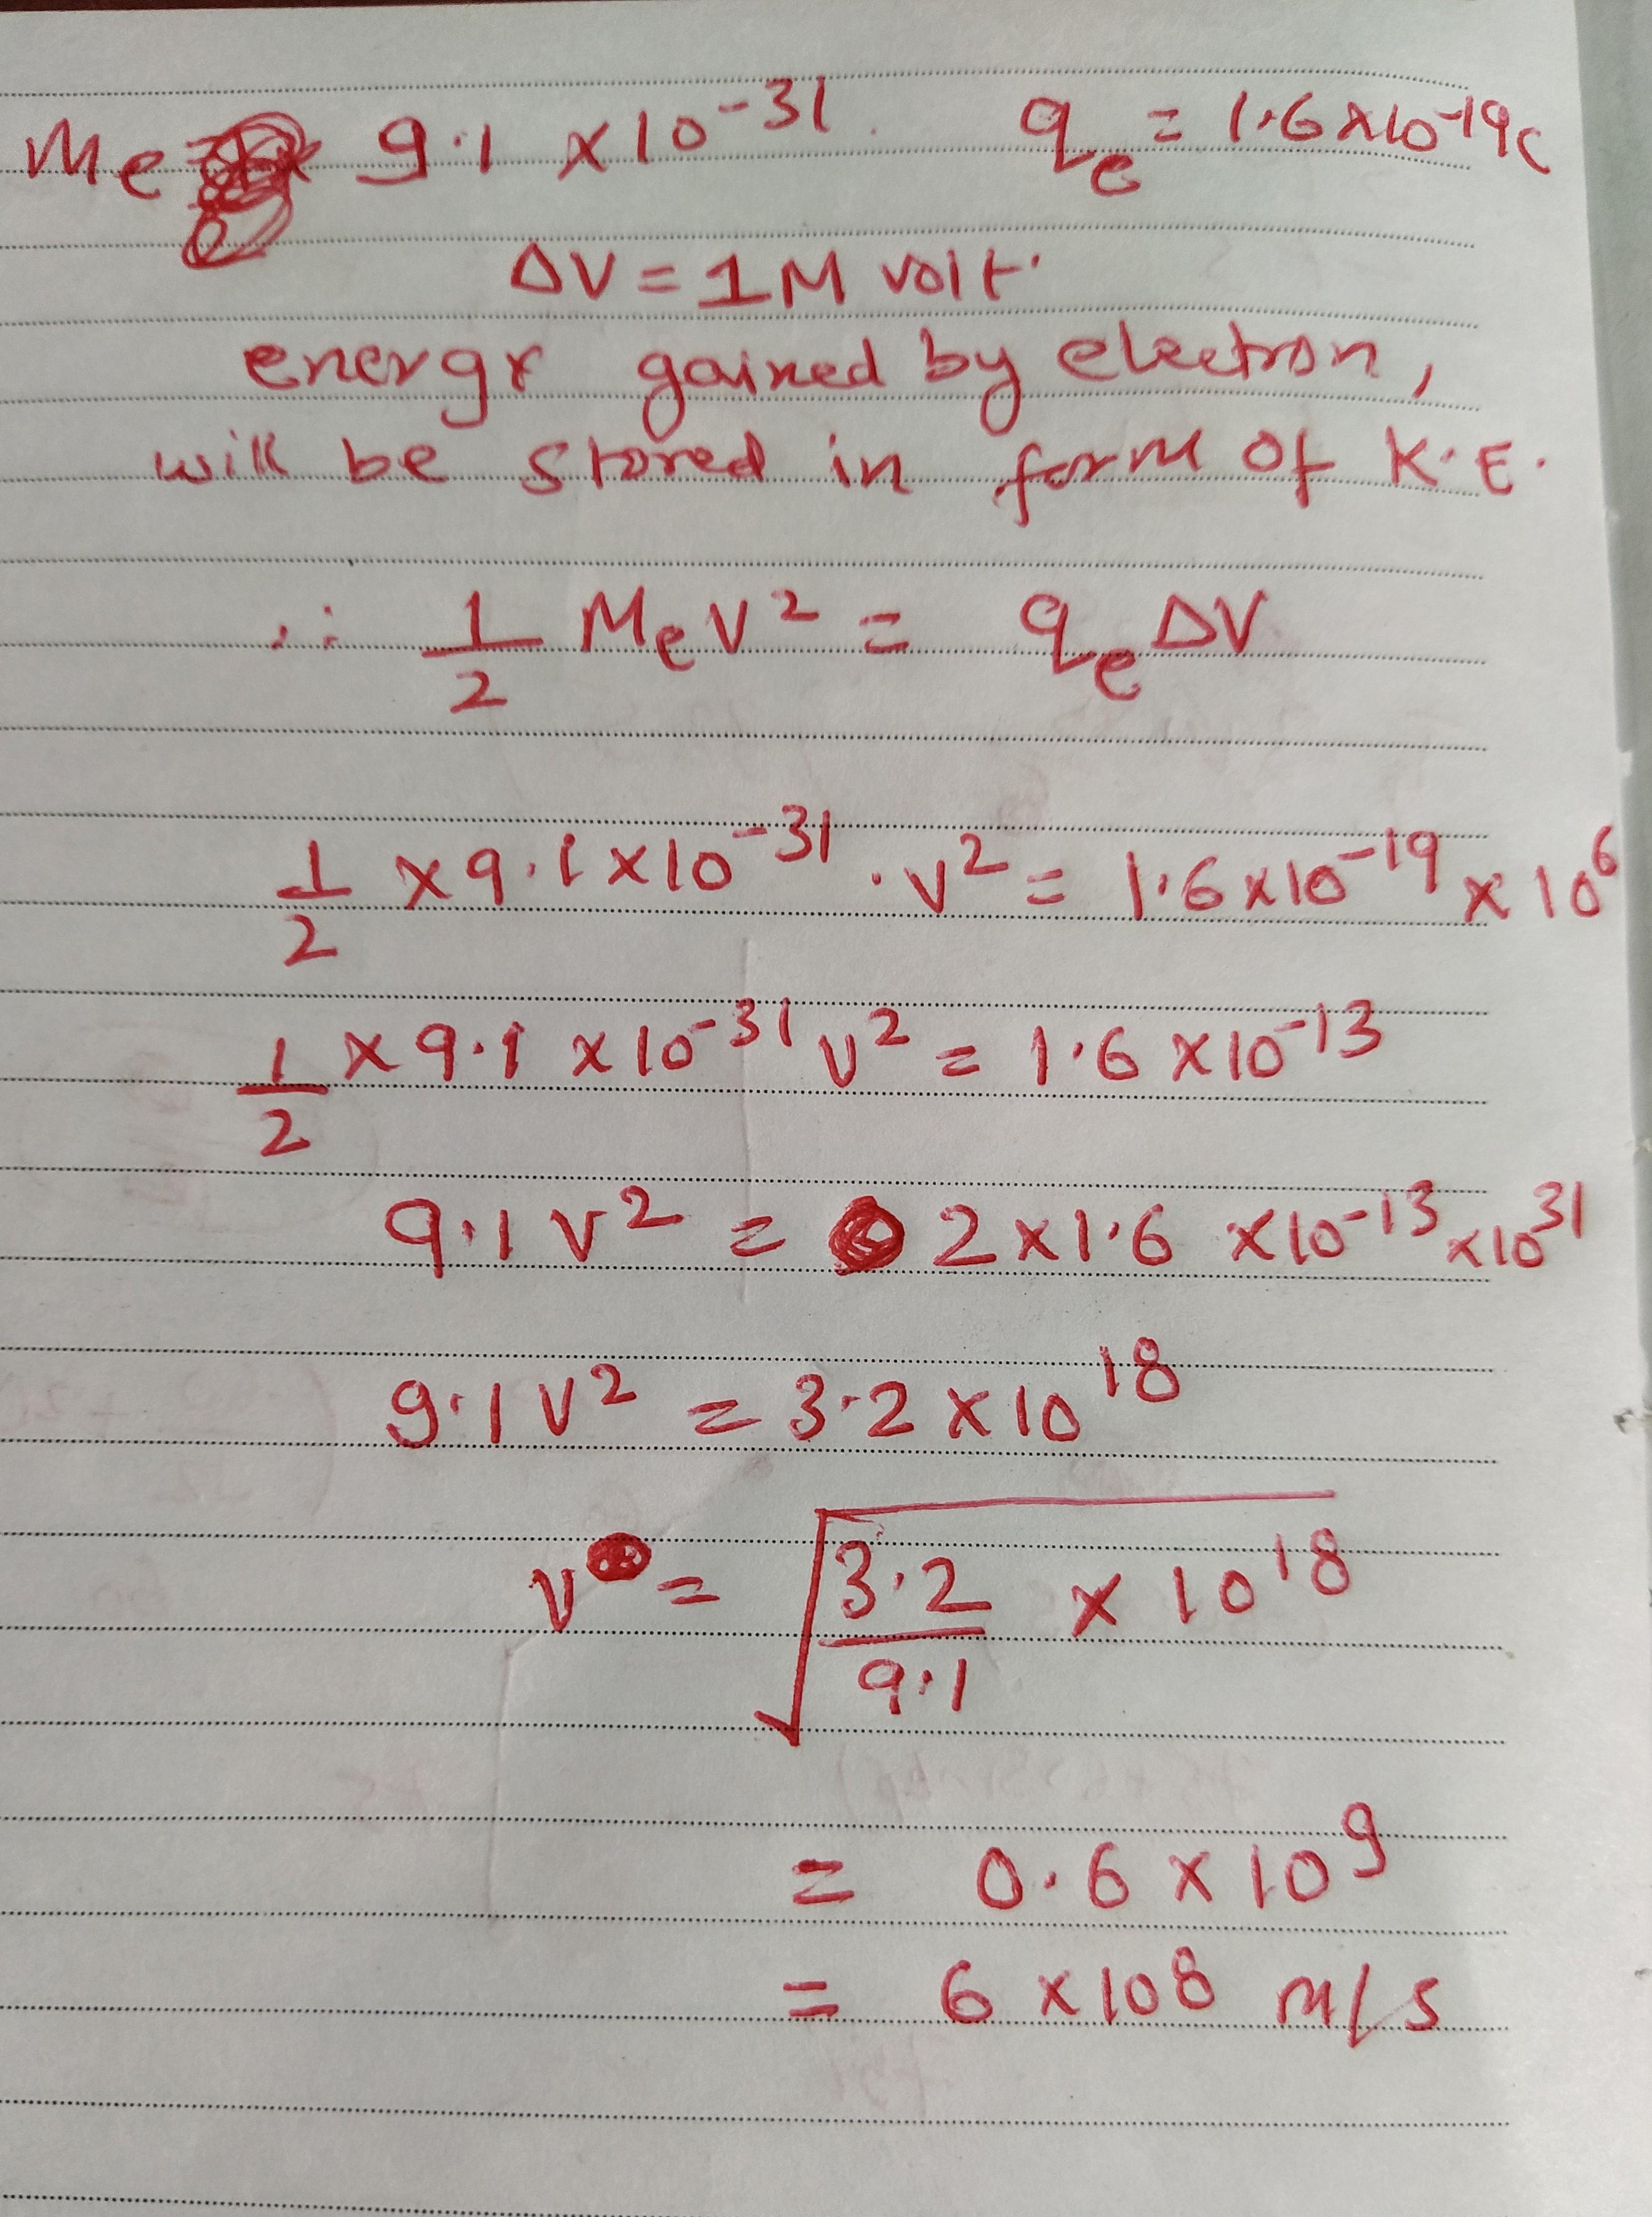 Me 9.1 × 10⁻³¹. qₑ = 1.6×10⁻¹⁹c
ΔV = 1M volt.
energy gained by electron,
will be stored in form of K.E.
∴ 1/2 Mₑ V² = qₑ ΔV
1/2 × 9.1 × 10⁻³¹ . v² = 1.6×10⁻¹⁹ × 10⁶
1/2 × 9.1 × 10⁻³¹ v² = 1.6 × 10⁻¹³
9.1 v² = 2 × 1.6 × 10⁻¹³ × 10³¹
9.1 v² = 3.2 × 10¹⁸
v = √(3.2/9.1 × 10¹⁸)
= 0.6 × 10⁹
= 6 × 10⁸ m/s